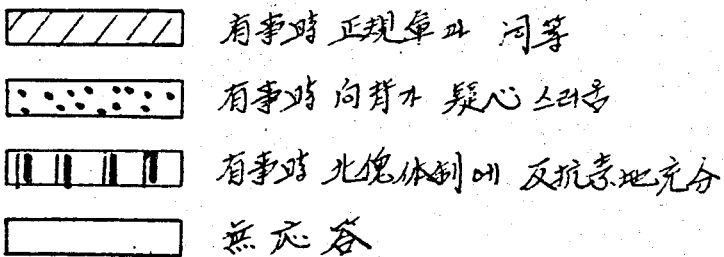 有事時 正規軍과 同等
有事時 向背가 疑心스러움
有事時 北傀体制에 反抗素地充分
無応答